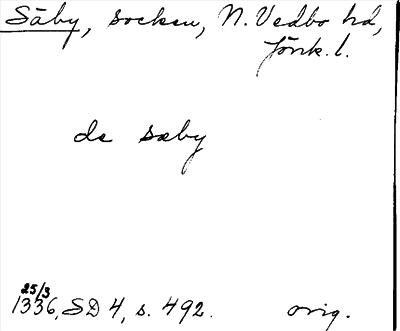 Säby, socken, N. Vedbo hd,
Jönk. l.
de sæby
25/3
1336, SD 4, s. 492. orig.